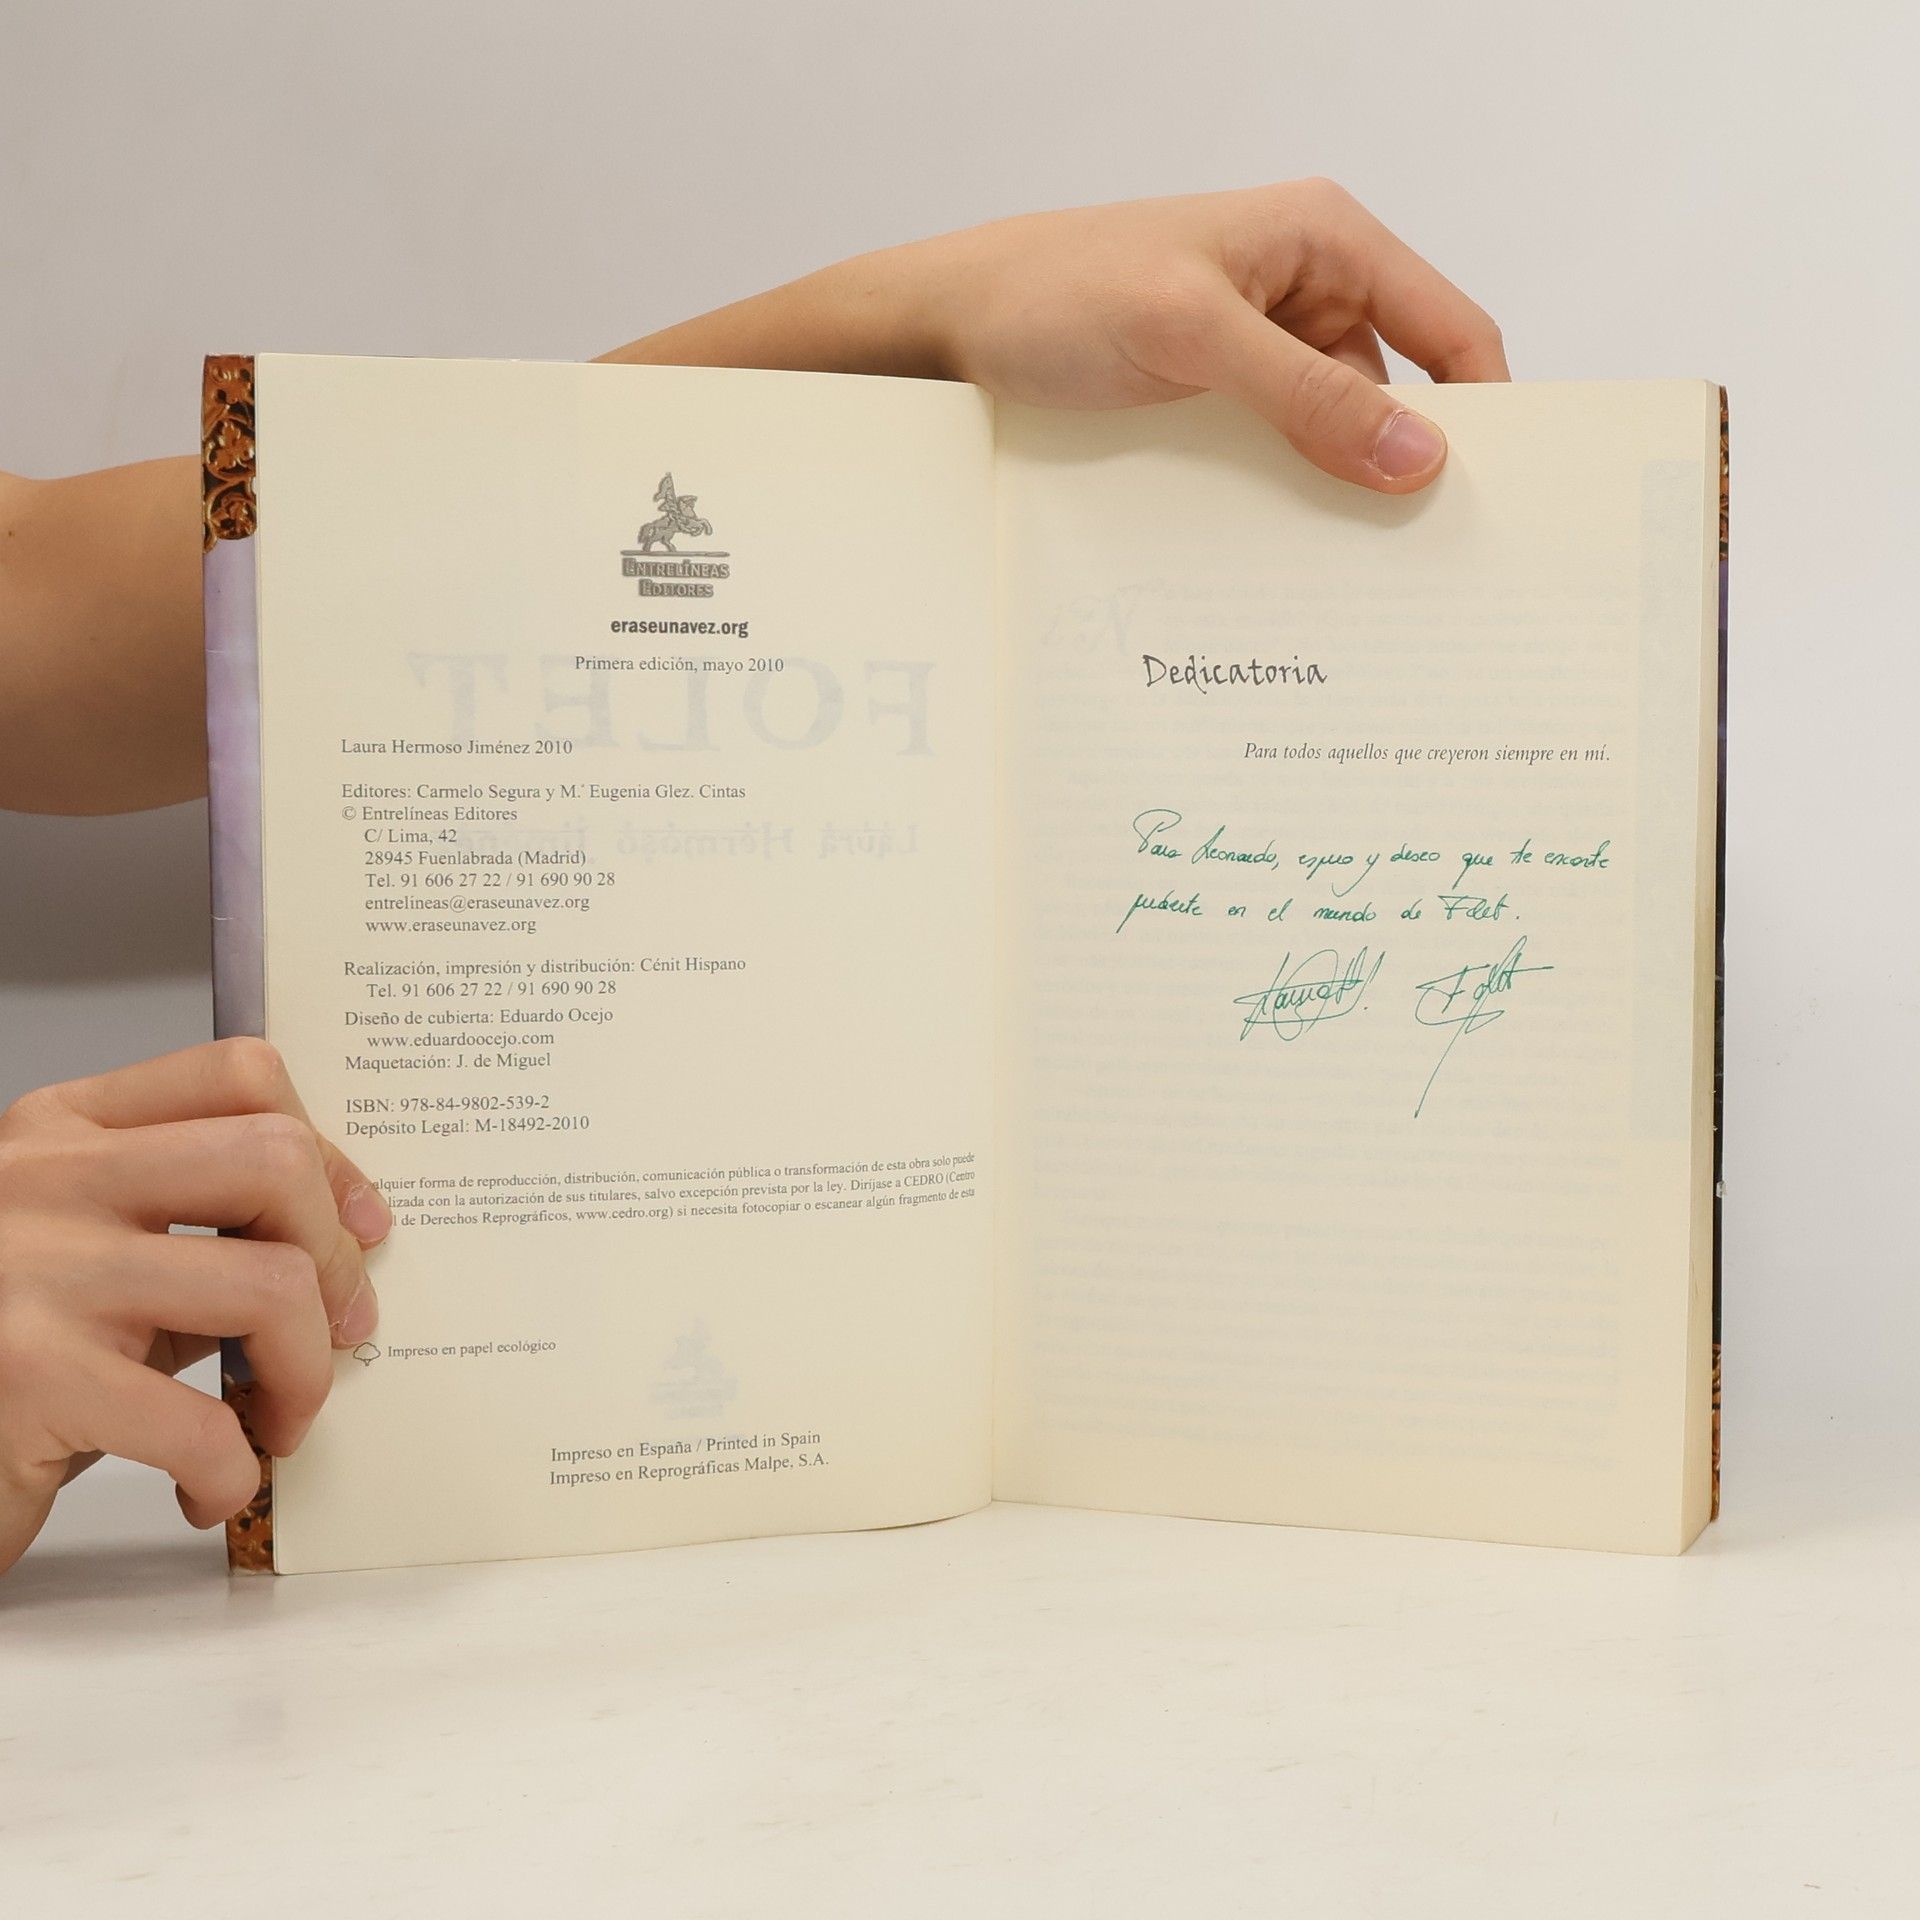 ENTRELÍNEAS
EDITORES
eraseunavez.org
Primera edición, mayo 2010
Laura Hermoso Jiménez 2010
Editores: Carmelo Segura y M.ª Eugenia Glez. Cintas
© Entrelíneas Editores
C/ Lima, 42
28945 Fuenlabrada (Madrid)
Tel. 91 606 27 22 / 91 690 90 28
entrelíneas@eraseunavez.org
www.eraseunavez.org
Realización, impresión y distribución: Cénit Hispano
Tel. 91 606 27 22 / 91 690 90 28
Diseño de cubierta: Eduardo Ocejo
www.eduardoocejo.com
Maquetación: J. de Miguel
ISBN: 978-84-9802-539-2
Depósito Legal: M-18492-2010
alquier forma de reproducción, distribución, comunicación pública o transformación de esta obra solo puede
lizada con la autorización de sus titulares, salvo excepción prevista por la ley. Diríjase a CEDRO (Centro
l de Derechos Reprográficos, www.cedro.org) si necesita fotocopiar o escanear algún fragmento de esta
Impreso en papel ecológico
Impreso en España / Printed in Spain
Impreso en Reprográficas Malpe, S.A.
Dedicatoria
Para todos aquellos que creyeron siempre en mí.
Para Leonardo, espero y deseo que te
en el mundo de Folet.
Folet